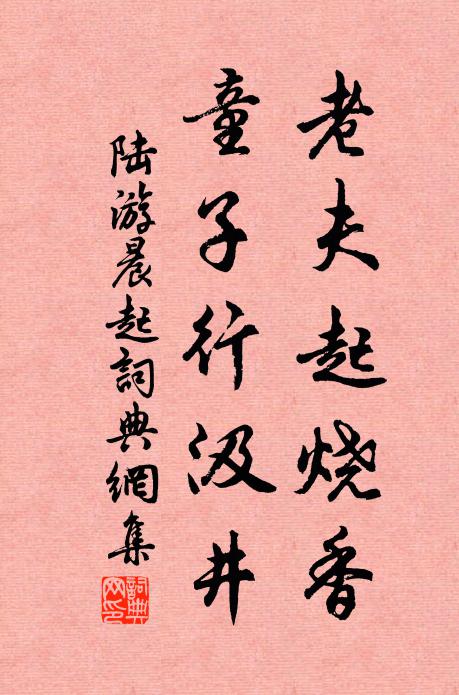 老夫起烧香
童子行汲井
陆游晨起詞典網集
詞典网印